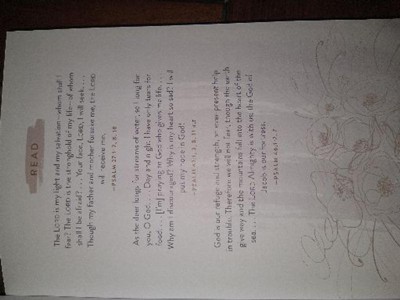 READ
The LORD is my light and my salvation—whom shall I
fear? The LORD is the stronghold of my life—of whom
shall I be afraid? . . . Your face, LORD, I will seek. . . .
Though my father and mother forsake me, the LORD
will receive me.
—PSALM 27:1, 8, 10
As the deer longs for streams of water, so I long for
you, O God. . . . Day and night I have only tears for
food. . . . [I'm] praying to God who gives me life. . . .
Why am I discouraged? Why is my heart so sad? I will
put my hope in God!
—PSALM 42:1, 3, 8, 11
God is our refuge and strength, an ever-present help
in trouble. Therefore we will not fear, though the earth
give way and the mountains fall into the heart of the
sea. . . . The LORD Almighty is with us; the God of
Jacob is our fortress.
—PSALM 46:1-2, 7